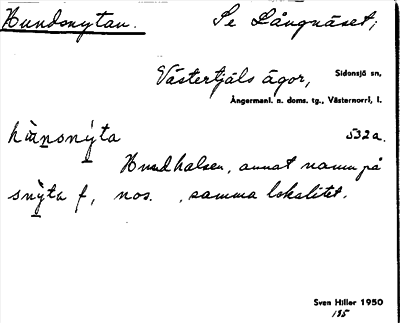 Hundsnytan. Se Långnäset;
Västertjäls ägor, Sidensjö sn,
Ångermanl. n. doms. tg., Västernorrl, l.
hùnsnýta 532a.
Hundhalsen, annat namn på
snỳta f, nos. , samma lokalitet.
Sven Hiller 1950
135